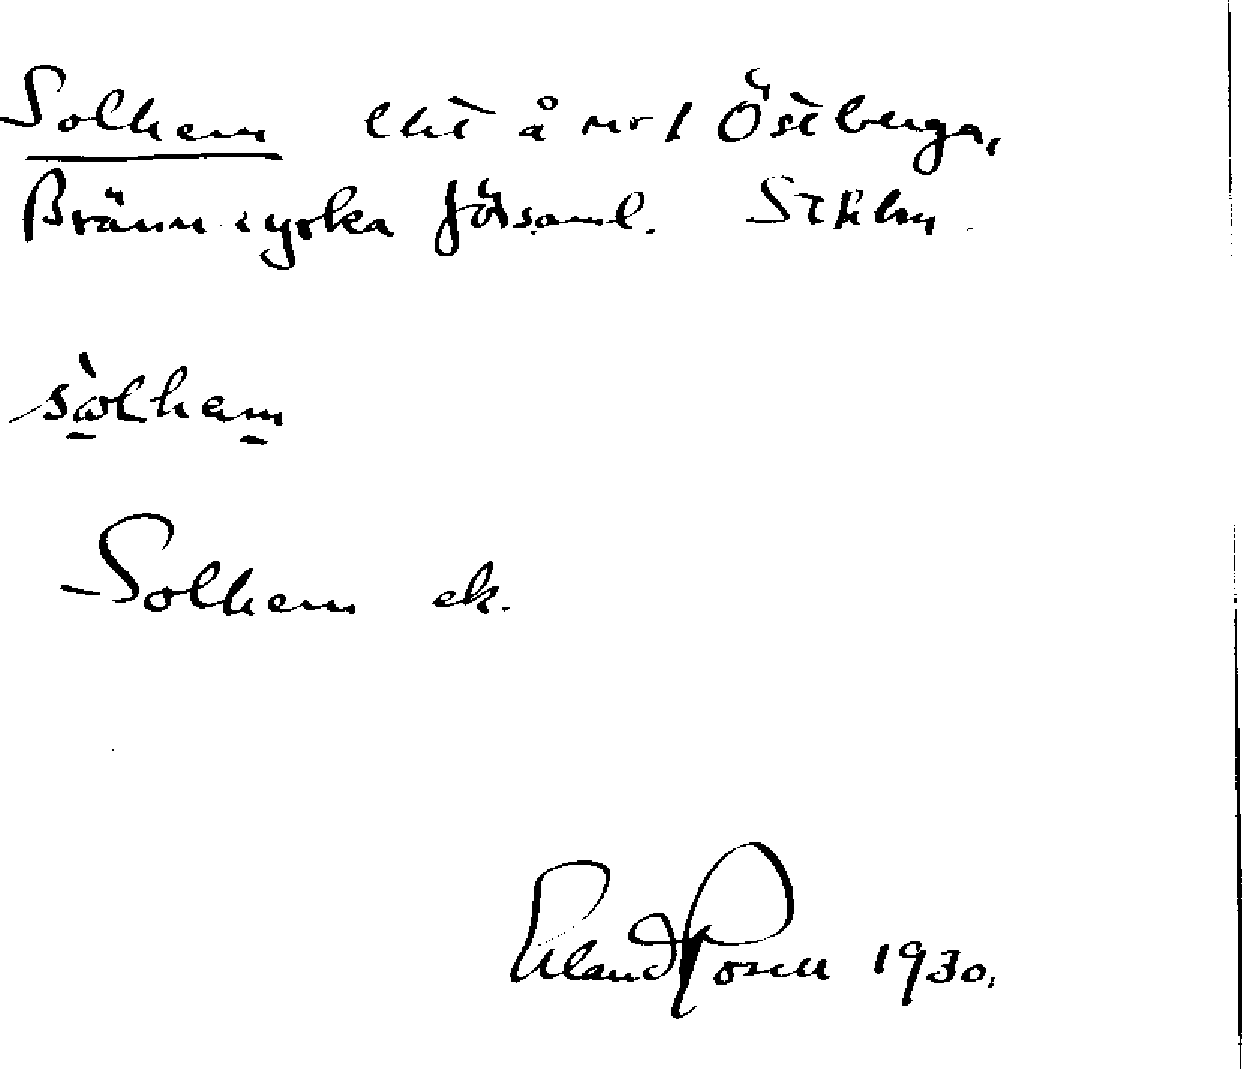 Solhem lht å nr 1 Östberga,
Brännkyrka församl. Sthlm
sòlhem
Solhem ek.
Erland Rosell 1930.